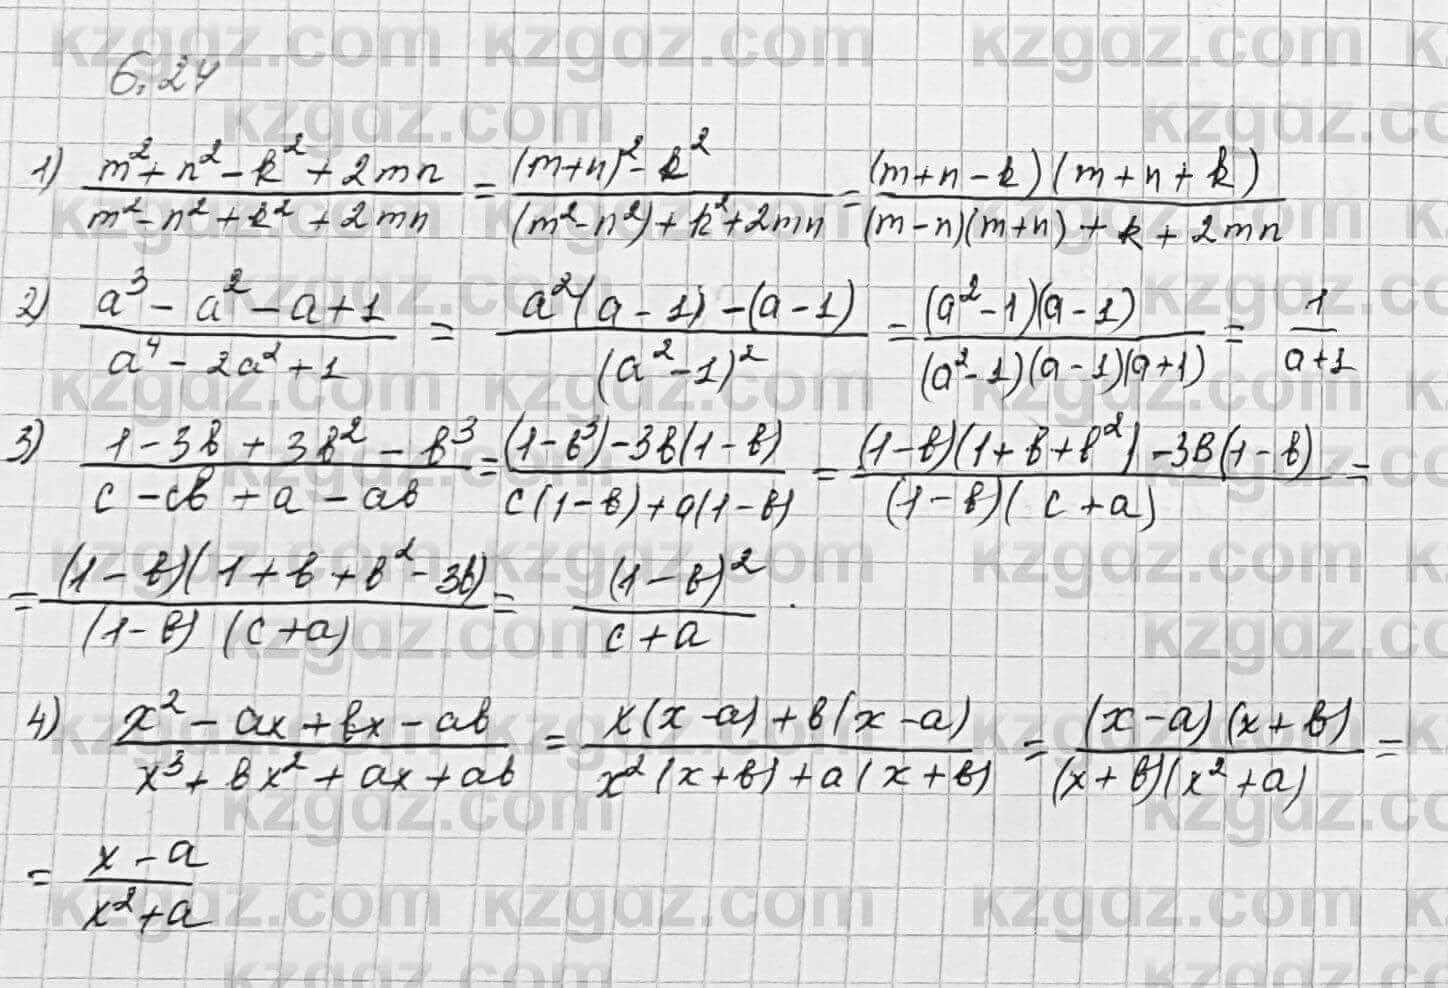 6.24
1) (m²+n²-k²+2mn)/(m²-n²+k²+2mn) = ((m+n)²-k²)/((m²-n²)+k²+2mn) = ((m+n-k)(m+n+k))/((m-n)(m+n)+k+2mn)
2) (a³-a²-a+1)/(a⁴-2a²+1) = (a²(a-1)-(a-1))/((a²-1)²) = ((a²-1)(a-1))/((a²-1)(a-1)(a+1)) = 1/(a+1)
3) (1-3b+3b²-b³)/(c-cb+a-ab) = ((1-b³)-3b(1-b))/(c(1-b)+a(1-b)) = ((1-b)(1+b+b²)-3b(1-b))/((1-b)(c+a)) =
= ((1-b)(1+b+b²-3b))/((1-b)(c+a)) = (1-b)²/(c+a).
4) (x²-ax+bx-ab)/(x³+bx²+ax+ab) = (x(x-a)+b(x-a))/(x²(x+b)+a(x+b)) = ((x-a)(x+b))/((x+b)(x²+a)) =
= (x-a)/(x²+a)
kzgdz.com